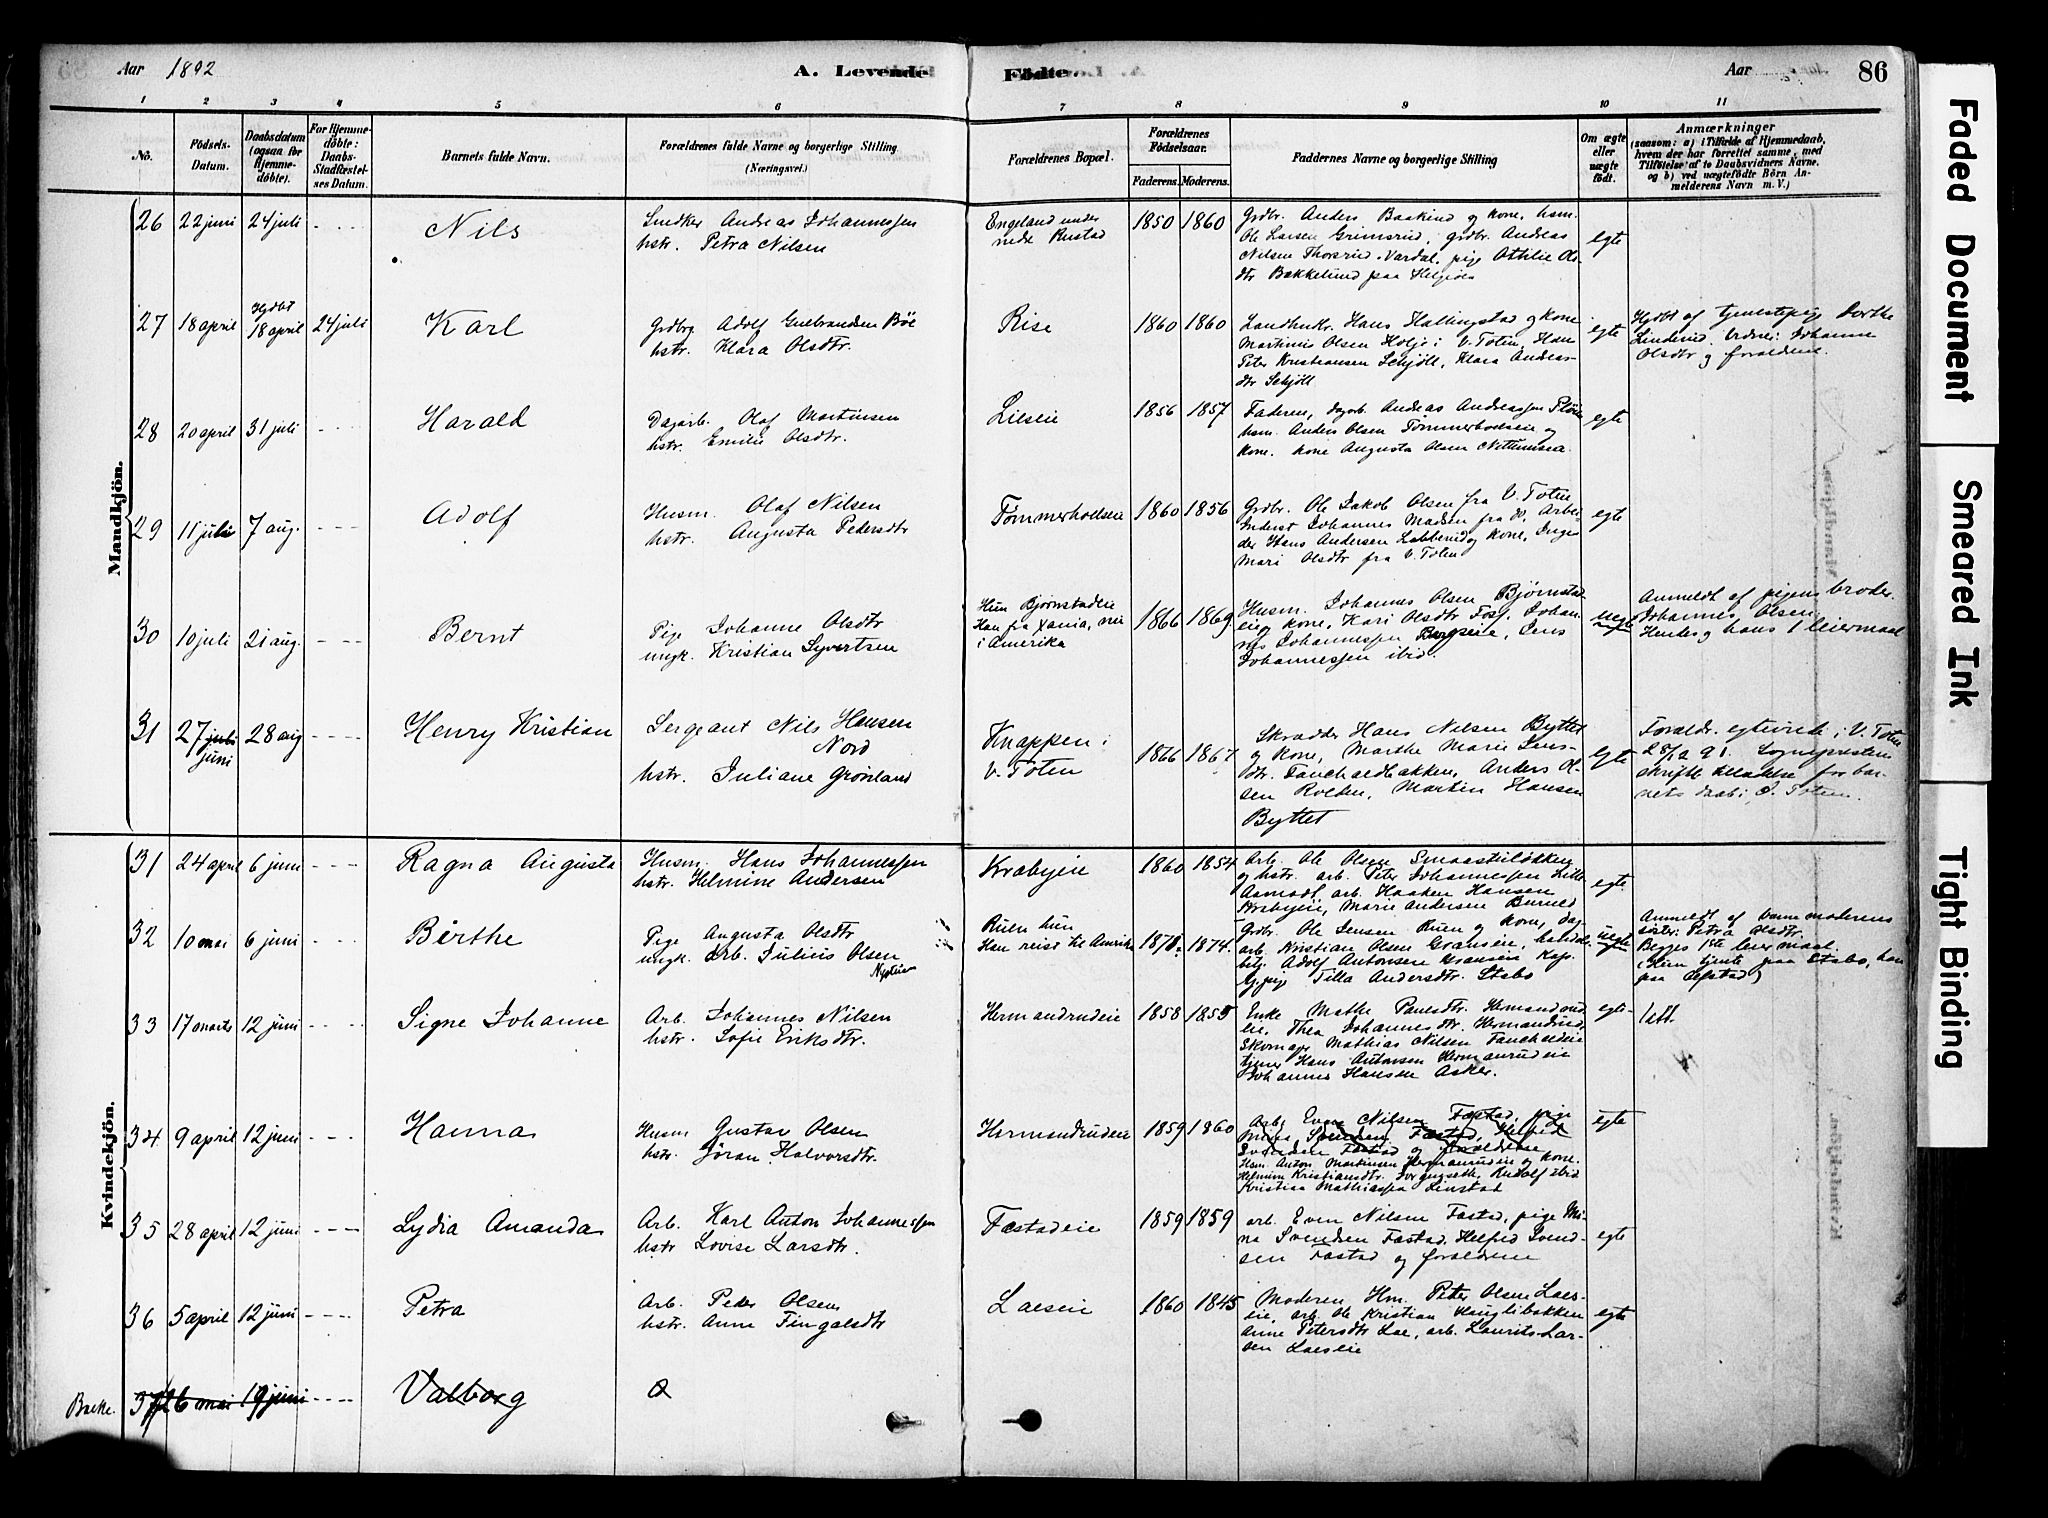 Aar 1892
A. Levende
Fødte
Aar
86
1 2 3 4 5 6 7 8 9 10 11
No.
Födsels-
Datum.
Daabsdatum
(ogsaa for
Hjemme-
döbte).
For Hjemme-
döbte:
Daabs-
Stadfæstel-
ses Datum.
Barnets fulde Navn.
Forældrenes fulde Navne og borgerlige Stilling
(Næringsvei.)
Forældrenes Bopæl.
Forældrenes
Födselsaar.
Faderens. Moderens.
Faddernes Navne og borgerlige Stilling
Om ægte
eller
uægte
født.
Anmærkninger
(saasom: a) i Tilfælde af Hjemmedaab,
hvem der har forrettet samme, med
Tilföielse af to Daabsvidners Navne,
og b) ved uægtefödte Börn An-
melderens Navn m. V.)
Mandkjön.
26 22 juni 24 juli
Nils
Snedker Andreas Johannessen
hstr. Petra Nilsen
Engeland under
nedr Rustad
1850 1860
Grdbr. Anders Baskind og kone, hsm.
Ole Larsen Grimsrud, grdbr. Andreas
Nilsen Thorsrud, Vardal, pige Ottilie Ols-
dtr Bakkelund paa Helgeda
egte
27 18 april Hjdbt
18 april 24 juli
Karl
Grdbr Adolf Gulbrandsen Bøe
hstr. Klara Olsdtr.
Rise
1860 1860
Landhdlr. Hans Hallingstad og kone
Martinius Olsen i V. Toten, Han
Peter Kristiansen Schjöll, Klara Anders-
dtr Schjöll
egte
Hjdbt af tjenestepige Dorthe
Linderud. Vidner: Johanne
Olsdtr og forældrene.
28 20 april 31 juli
Harald
Dagarb. Olaf Martinsen
hstr. Emilie Olsdtr.
Lilseie
1856 1857
Faderen, dagarb. Andreas Andreassen
hsm. Anders Olsen Tømmerholseie og
kone, kone Augusta Olsen
egte
29 11 juli 7 aug.
Adolf
Husm. Olaf Nilsen
hstr. Augusta Pedersdtr
Tømmerholseie
1860 1856
Grdbr. Ole Jakob Olsen fra V. Toten
Inderst Johannes Madsen fra do, Arbei-
der Hans Andersen og kone, Inge
Mari Olsdtr fra V. Toten
egte
30 10 juli 21 aug.
Bernt
Pige Johanne Olsdtr
ungk. Kristian Syvertsen
Hun Bjørnstadeie
Han fra Xania, nu
i Amerika
1866 1869
Husm. Johannes Olsen Bjørnstad
eie og kone, Kari Olsdtr Foss, Johan-
nes Johannessen Bergseie, Jens
Johannessen ibid.
uegte
Anmeldt af pigens broder
Johannes Olsen.
Hendes og hans 1 leiermaal
31 27 juli
juni
28 aug
Henry Kristian
Sergeant Nils Hansen
Nord
hstr. Juliane Grönland
Knappen i
V. Toten
1866 1867
Skrædder Hans Nilsen Byttet
og kone, Marthe Marie Jens-
dtr. Fauchaldbakken, Anders Ol-
sen Rolden, Martin Hansen
Byttet
egte
Foreldr. egteviede i V. Toten
28/12 91. Sognepresten
skriftl. tilladelse for bar-
nets daab i Ø. Toten.
Kvindekjön.
31 24 april 6 juni
Ragna Augusta
Husm. Hans Johannessen
hstr. Helmine Andersen
Krabyeie
1860 1854
Arb. Ole Olsen Smaastuløkken
og hstr. arb. Peter Johannessen Lille
Aamodt, arb. Haaken Hansen
Krabyeie, Marie Andersen
egte
32 10 mai 6 juni
Birthe
Pige Augusta Olsdtr
ungk. Arb. Julius Olsen
Ruen hun
Han reist til Amrika
1871. 1874.
Grdbr. Ole Jensen Ruen og kone, dag
arb. Kristian Olsen Granseie, handels
betj. Adolf Antonsen Kap,
pige Tilla Andersdtr. Stabo
uegte
Anmeldt af barnemoderens
søster: Petra Olsdtr.
Begges 1ste leiermaal.
(Hun tjente paa Stabo, han
paa Alfstad)
33 17 marts 12 juni
Signe Johanne
Arb. Johannes Nilsen
hstr. Sofie Eriksdtr.
Hermandrudeie
1858 1855
Enke Mathe Paulsdtr. Hermandrud
eie, Thea Johannesdtr. Hermandrud,
Skomager Mathias Nilsen Fauchaldeie
tjener Hans Antonsen Hermanrudeie
Johannes Hansen Asker.
egte
34 9 april 12 juni
Hanna
Husm Gustav Olsen
hstr. Jöran Halvorsdtr.
Hermandrudeie
1859 1860
Arb. Even Nilsen Fæstad, pige
Mina Svendsen Fæstad, Helfrid
Svendsen Fæstad og forældrene
Hsm. Anton Martinsen Hermanrudeie og kone.
Helmine Kristiansdtr. Rudolf ibid
Kristian Mathiassen Linstad
egte
35 28 april 12 juni
Lydia Amanda
Arb. Karl Anton Johannessen
hstr Lovise Larsdtr.
Fæstadeie
1859 1859
arb. Even Nilsen Fæstad, pige Mi-
na Svendsen Fæstad, Helfrid Svend-
sen Fæstad og forældrene
egte
36 5 april 12 juni
Petra
Arb. Peder Olsen
hstr. Anne Fingalsdtr
Laeseie
1860 1845
Moderen Hm. Peter Olsen Laes-
eie, arb. Ole Kristian Hauglibakken
Anne Petersdtr Lae, arb. Laurits Lar-
sen Laeseie
egte
37 26 mai 19 juni
Valborg
Faded Document
Smeared Ink
Tight Binding